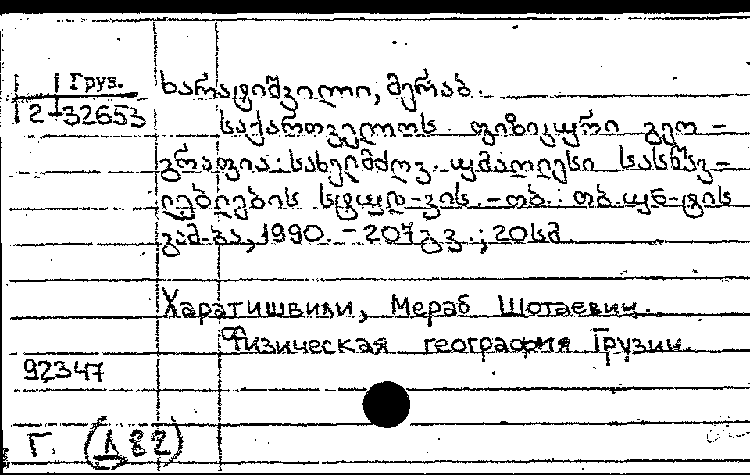 Груз.
2-32653
ხარატიშვილი, მერაბ.
საქართველოს ფიზიკური გეო-
გრაფია: სახელმძღვ. უმაღლესი სასწავ-
ლებლების სტუდ-ვის. - თბ.: თბ. უნ-ტის
გამ-ბა, 1990. - 207 გვ.; 20 სმ
Харатишвили, Мераб Шотаевич.
Физическая география Грузии.
92347
Г. (Д82)